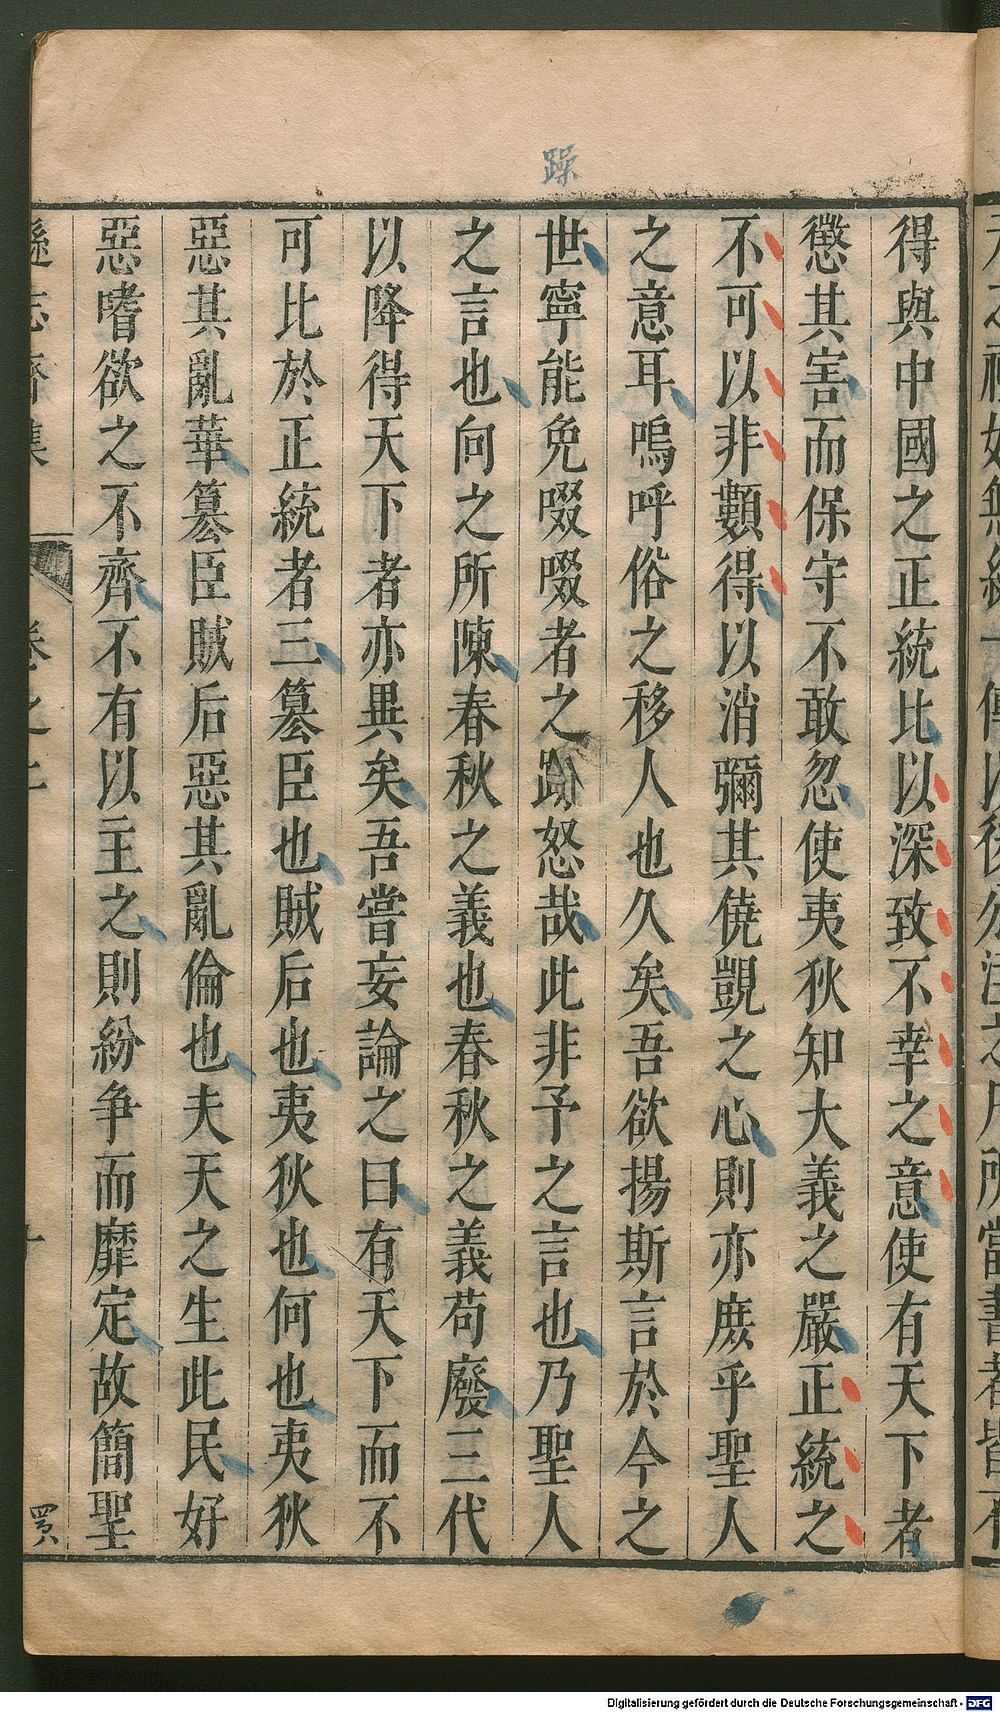 躁
得與中國之正統比以深致不幸之意使有天下者
懲其害而保守不敢忽使夷狄知大義之嚴正統之
不可以非數得以消彌其僥覬之心則亦庶乎聖人
之意耳嗚呼俗之移人也久矣吾欲揚斯言於今之
世寧能免啜啜者之跡怒哉此非予之言也乃聖人
之言也向之所陳春秋之義也春秋之義苟廢三代
以降得天下者亦異矣吾嘗妄論之曰有天下而不
可比於正統者三篡臣也賊后也夷狄也何也夷狄
惡其亂華篡臣賊后惡其亂倫也夫天之生此民好
惡嗜欲之不齊不有以主之則紛争而靡定故簡聖
遜志齊集
卷之二
Digitalisierung gefördert durch die Deutsche Forschungsgemeinschaft - DFG